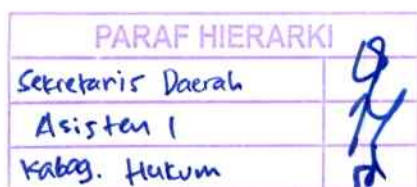 PARAF HIERARKI
Sekretaris Daerah
Asisten I
Kabag. Hukum